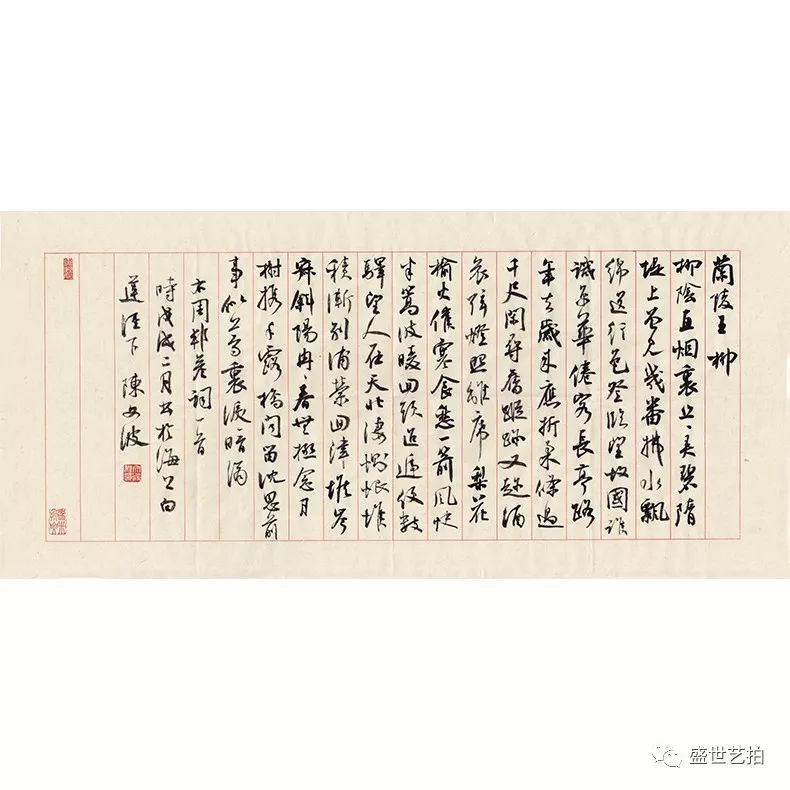 蘭陵王 柳
柳陰直烟裏丝丝弄碧隋
堤上曾見幾番拂水飄
綿送行色登臨望故國誰
識京華倦客長亭路
年去歲來應折柔條過
千尺閑尋舊蹤跡又趁酒
哀弦燈照離席梨花
榆火催寒食愁一箭風快
半篙波暖回頭迢遞便數
驛望人在天北凄惻恨堆
積漸别浦縈回津堠岑
寂斜陽冉冉春無極念月
榭携手露橋聞笛沈思前
事似夢裏淚暗滴
右周邦彦詞一首
時戊戌二月書於海上白
蓮涇下 陳
波
盛世艺拍